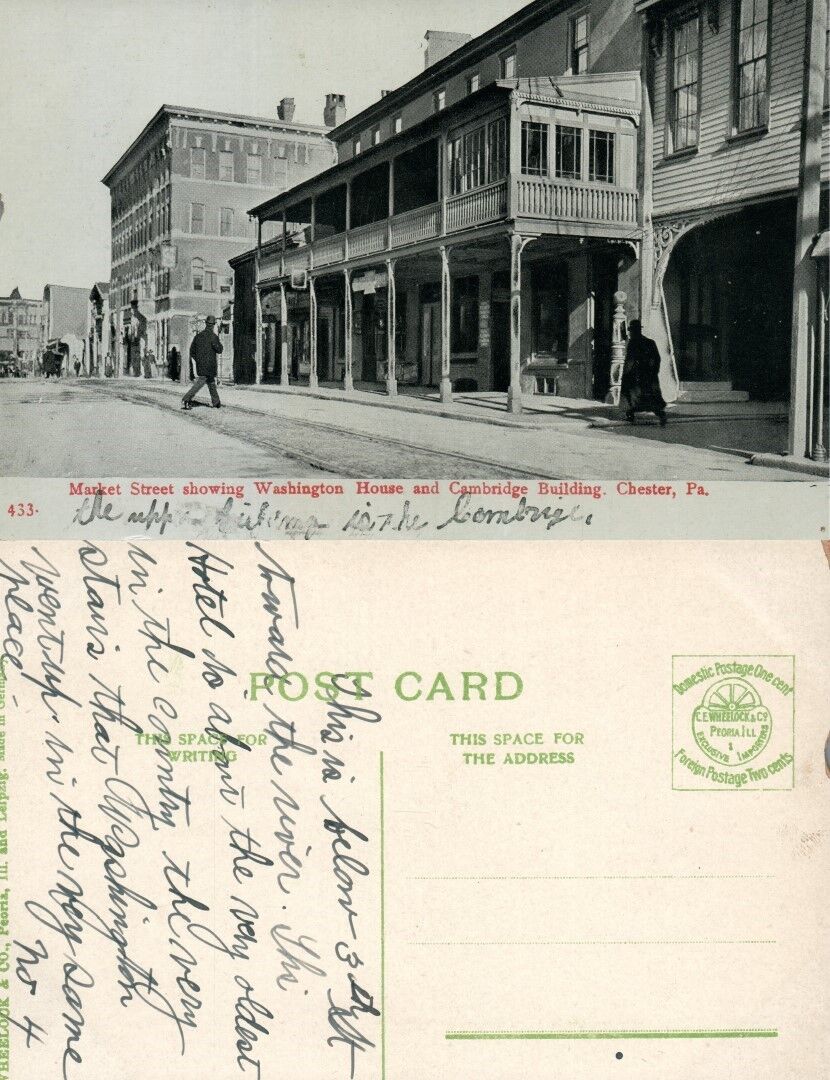 Market Street showing Washington House and Cambridge Building. Chester, Pa.
433.
the upper building is the Cambryge.
POST CARD
THIS SPACE FOR
WRITING
THIS SPACE FOR
THE ADDRESS
Domestic Postage One cent
C.E. WHEELOCK & Co
PEORIA ILL
EXCLUSIVE IMPORTERS
Foreign Postage Two cents
This is below 3th St
towards the river. This
Hotel is about the very oldest
in the country the very
stairs that Washington
went up, in the very same
place -
No 4
WHEELOCK & CO., Peoria, Ill. and Leipzig. Made in German